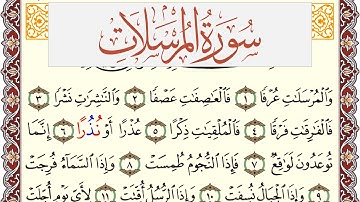 سُورَةُ المُرْسَلَاتِ
وَالْمُرْسَلَٰتِ عُرْفًا ١ فَالْعَٰصِفَٰتِ عَصْفًا ٢ وَالنَّٰشِرَٰتِ نَشْرًا ٣
فَالْفَٰرِقَٰتِ فَرْقًا ٤ فَالْمُلْقِيَٰتِ ذِكْرًا ٥ عُذْرًا أَوْ نُذْرًا ٦ إِنَّمَا
تُوعَدُونَ لَوَٰقِعٌ ٧ فَإِذَا النُّجُومُ طُمِسَتْ ٨ وَإِذَا السَّمَآءُ فُرِجَتْ
٩ وَإِذَا الْجِبَالُ نُسِفَتْ ١٠ وَإِذَا الرُّسُلُ أُقِّتَتْ ١١ لِأَيِّ يَوْمٍ أُجِّلَتْ